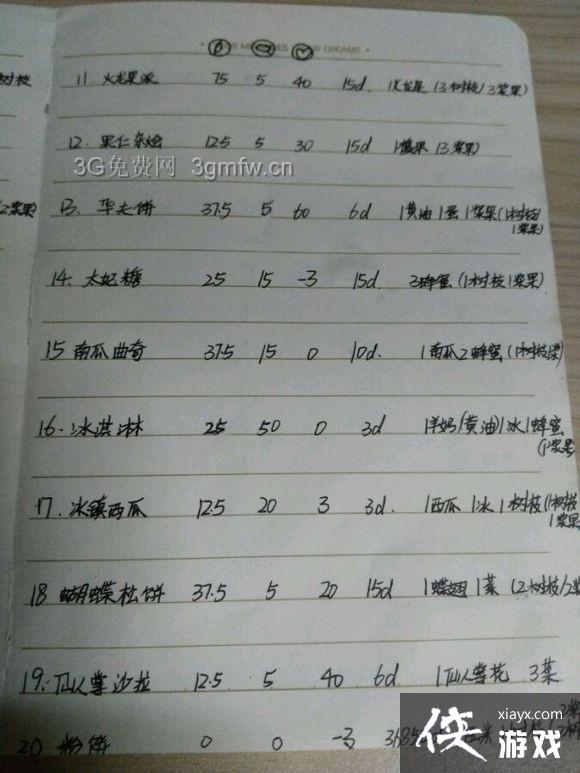 树枝
11. 火龙果派 75 5 40 15d. 1火龙果 (3树枝/3浆果)
12. 果仁杂烩 12.5 5 30 15d (3浆果)
3G免费网 3gmfw.cn
2浆果)
13. 华夫饼 37.5 5 60 6d 1黄油1蛋1浆果(1树枝/
1浆果)
14. 太妃糖 25 15 -3 15d 3蜂蜜(1树枝1浆果)
15 南瓜曲奇 37.5 15 0 10d. 1南瓜2蜂蜜(1树枝
16. 冰淇淋 25 50 0 3d 1羊奶(黄油)1冰1蜂蜜
(1浆果)
17. 冰镇西瓜 12.5 20 3 3d. 1西瓜1冰1树枝(1树枝
1浆果)
18 蝴蝶松饼 37.5 5 20 15d 1蝶翅1菜(2树枝/2浆
19. 仙人掌沙拉 12.5 5 40 6d 1仙人掌花 3菜
20 粉饼 0 0 -3
xiayx.com
侠游戏